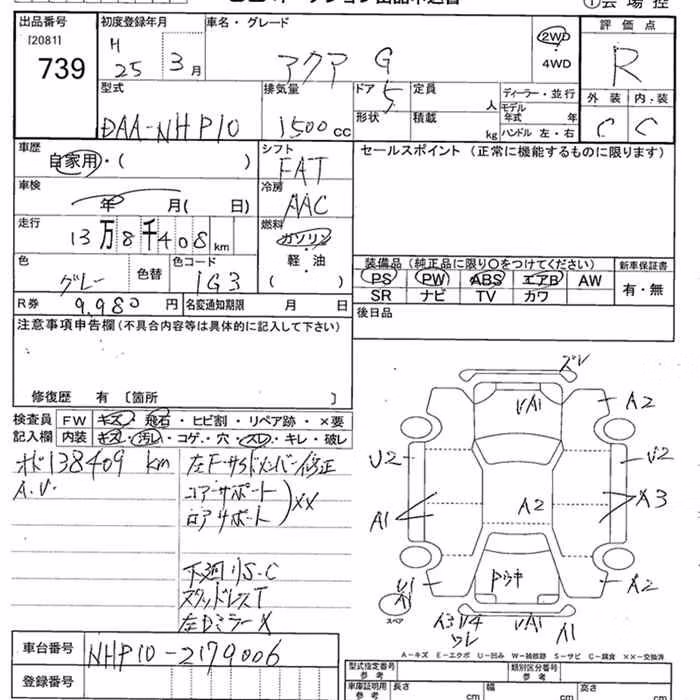 出品番号 初度登録年月 車名・グレード 評価点
[20811]
739
H
25 3月
アクア G
2WD
・
4WD
R
型式 排気量 ドア 定員 ディーラー・並行 外装 内装
DAA-NHP10 1500cc 5 人 モデル年式 年 C C
形状 積載 kg ハンドル 左・右
車歴 シフト セールスポイント (正常に機能するものに限ります)
自家用・( ) FAT
車検 冷房
年 月( 日) AAC
走行 燃料
13万8千408km ガソリン
軽・油
( )
色 色替 色コード
グレー 1G3
装備品(純正品に限り○をつけてください) 新車保証書
PS PW ABS エアB AW 有・無
SR ナビ TV カワ
R券 9,980円 名変通知期限 月 日 後日品
注意事項申告欄(不具合内容等は具体的に記入して下さい)
修復歴 有 [箇所 ]
検査員 FW キズ・飛石・ヒビ割・リペア跡・×要
記入欄 内装 キズ・汚レ・コゲ・穴・スレ・キレ・破レ
オド138409 km
A.V.
左F・サイドメンバー修正
コアサポート
ロアサポート
××
下廻りS・C
スタッドレスT
左Dミラー×
ズレ
VA1
A2
U2
U2
A1
A2
X3
U1
A1
スペア
A2
U4
ワレ
VA1
A1
A-キズ E-エクボ U-凹み W-補修跡 S-サビ C-腐食 ××-交換済
車台番号 NHP10-2179006
登録番号
型式指定番号 参考 類別区分番号 参考
車庫証明用 参考 長さ cm 幅 cm 高さ cm